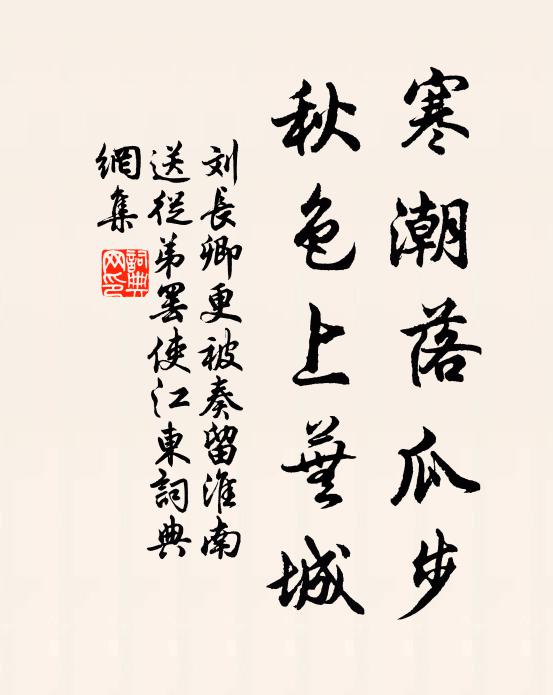 寒潮落瓜步
秋色上蕪城
刘長卿更被奏留淮南
送従弟罢使江東詞典
網集
詞典
网印